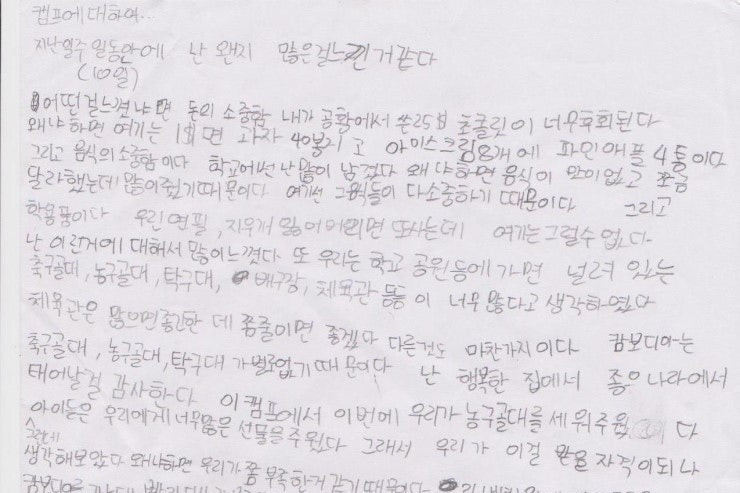 캠프에 대하여...
지난 일주일동안에 난 왠지 많은걸 느낀거같다
(10일)
어떤걸 느꼈냐면 돈의 소중함 내가 공황에서 쓴 25$ 초콜릿이 너무 후회된다
왜냐하면 여기는 1$면 과자 40봉지고 아이스크림 8개에 파인애플 4통이다
그리고 음식의 소중함이다 학교에선 난 많이 남겼다 왜냐하면 음식이 맛이없고 쪼금
달라했는데 많이줬기 때문이다 여기선 그음식들이 다 소중하기 때문이다 그리고
학용품이다 우린 연필, 지우개 잃어버리면 또사는데 여기는 그럴수 없다
난 이런거에 대해서 많이 느꼈다 또 우리는 학교 공원등에 가면 널려 있는
축구골대, 농구골대, 탁구대, 배구장, 체육관 등등이 너무 많다고 생각하였다
체육관은 많으면 좋긴한데 쫌 줄이면 좋겠다 다른것도 마찬가지이다 캄보디아는
축구골대, 농구골대, 탁구대가 별로없기 때문이다 난 행복한 집에서 좋은 나라에서
태어날걸 감사한다 이 캠프에서 이번에 우리가 농구골대를 세워주었다
아이들은 우리에게 너무많은 선물을 주웠다 그래서 우리가 이걸 받을 자격이 되나
그런데
생각해보았다 왜냐하면 우리가 쫌 부족한거 같기 때문이다